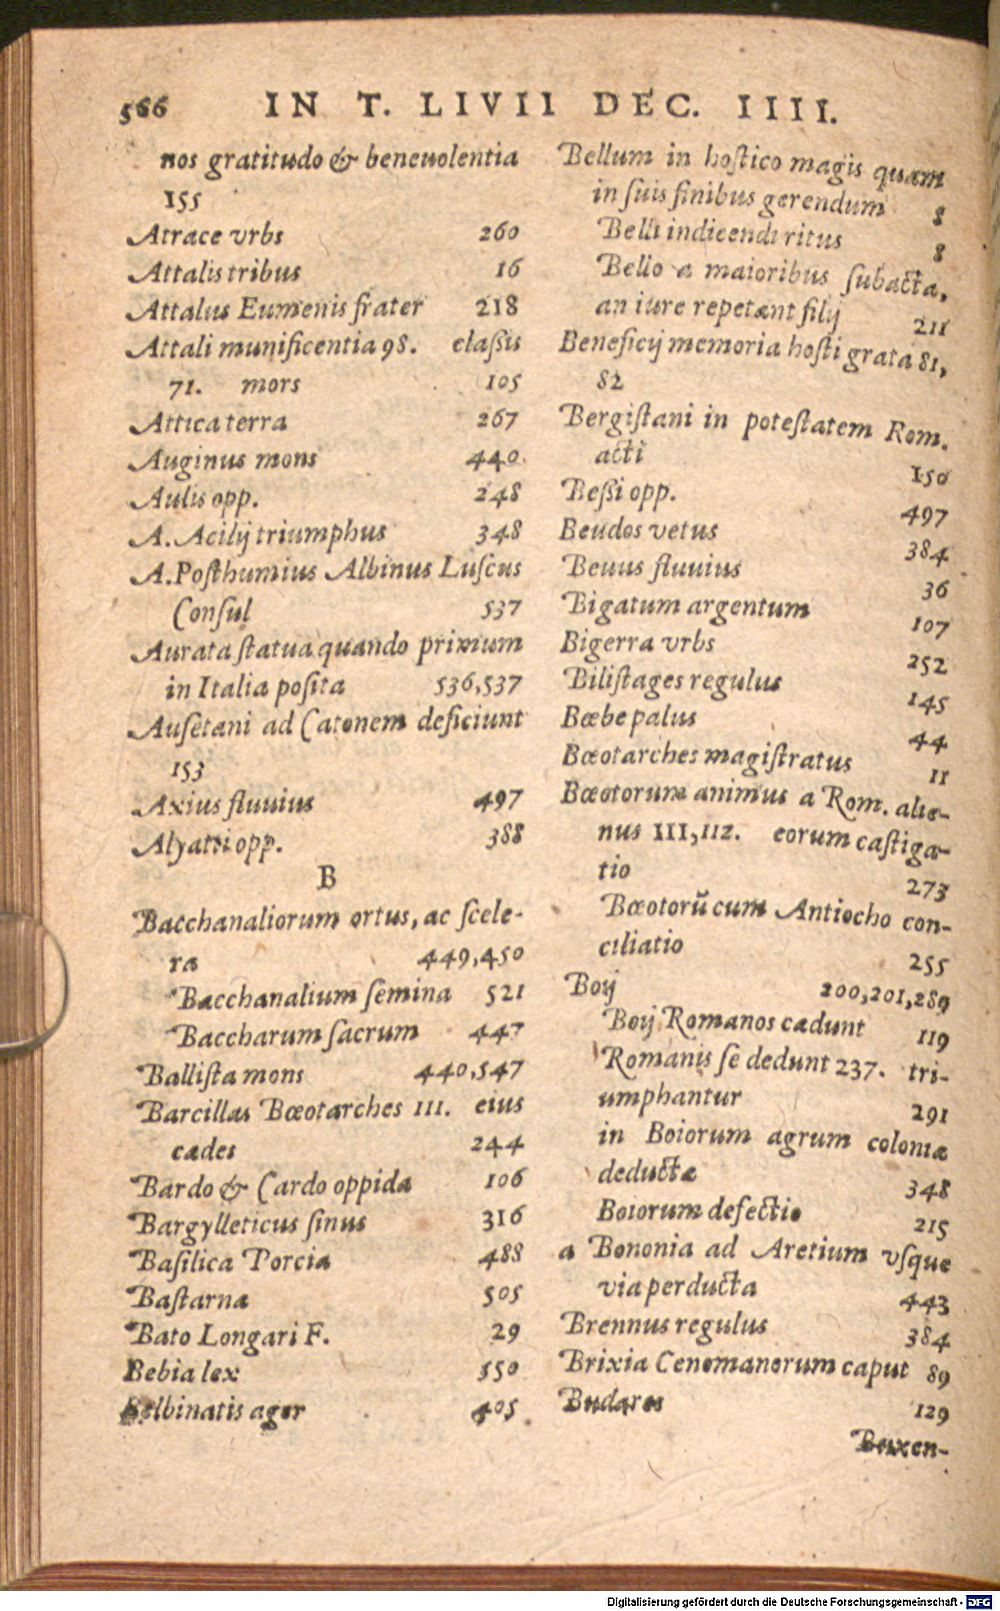 566 IN T. LIVII DEC. IIII.
nos gratitudo & beneuolentia
155
Atrace vrbs 260
Attalis tribus 16
Attalus Eumenis frater 218
Attali munificentia 98. classis
71. mors 105
Attica terra 267
Auginus mons 440
Aulis opp. 248
A. Acilij triumphus 348
A. Posthumius Albinus Luscus
Consul 537
Aurata statua quando primum
in Italia posita 536,537
Ausetani ad Catonem deficiunt
153
Axius fluuius 497
Alyatti opp. 388
B
Bacchanaliorum ortus, ac scele-
ra 449,450
Bacchanalium semina 521
Baccharum sacrum 447
Ballista mons 440,547
Barcillas Bœotarches 111. eius
cædes 244
Bardo & Cardo oppida 106
Bargylleticus sinus 316
Basilica Porcia 488
Bastarnæ 505
Bato Longari F. 29
Bebia lex 550
Belbinatis ager 405
Bellum in hostico magis quam
in suis finibus gerendum 8
Belli indicendi ritus 8
Bello a maioribus subacta,
an iure repetant filij 211
Beneficij memoria hosti grata 81,
82
Bergistani in potestatem Rom.
acti 150
Bessi opp. 497
Beudos vetus 384
Beuus fluuius 36
Bigatum argentum 107
Bigerra vrbs 252
Bilistages regulus 145
Bœbe palus 44
Bœotarches magistratus 11
Bœotorum animus a Rom. alie-
nus 111,112. eorum castiga-
tio 273
Bœotorũ cum Antiocho con-
ciliatio 255
Boij 200,201,289
Boij Romanos cædunt 119
Romanis se dedunt 237. tri-
umphantur 291
in Boiorum agrum coloniæ
deductæ 348
Boiorum defectio 215
a Bononia ad Aretium vsque
via perducta 443
Brennus regulus 384
Brixia Cenomanorum caput 89
Budares 129
Buxen-
Digitalisierung gefördert durch die Deutsche Forschungsgemeinschaft - DFG